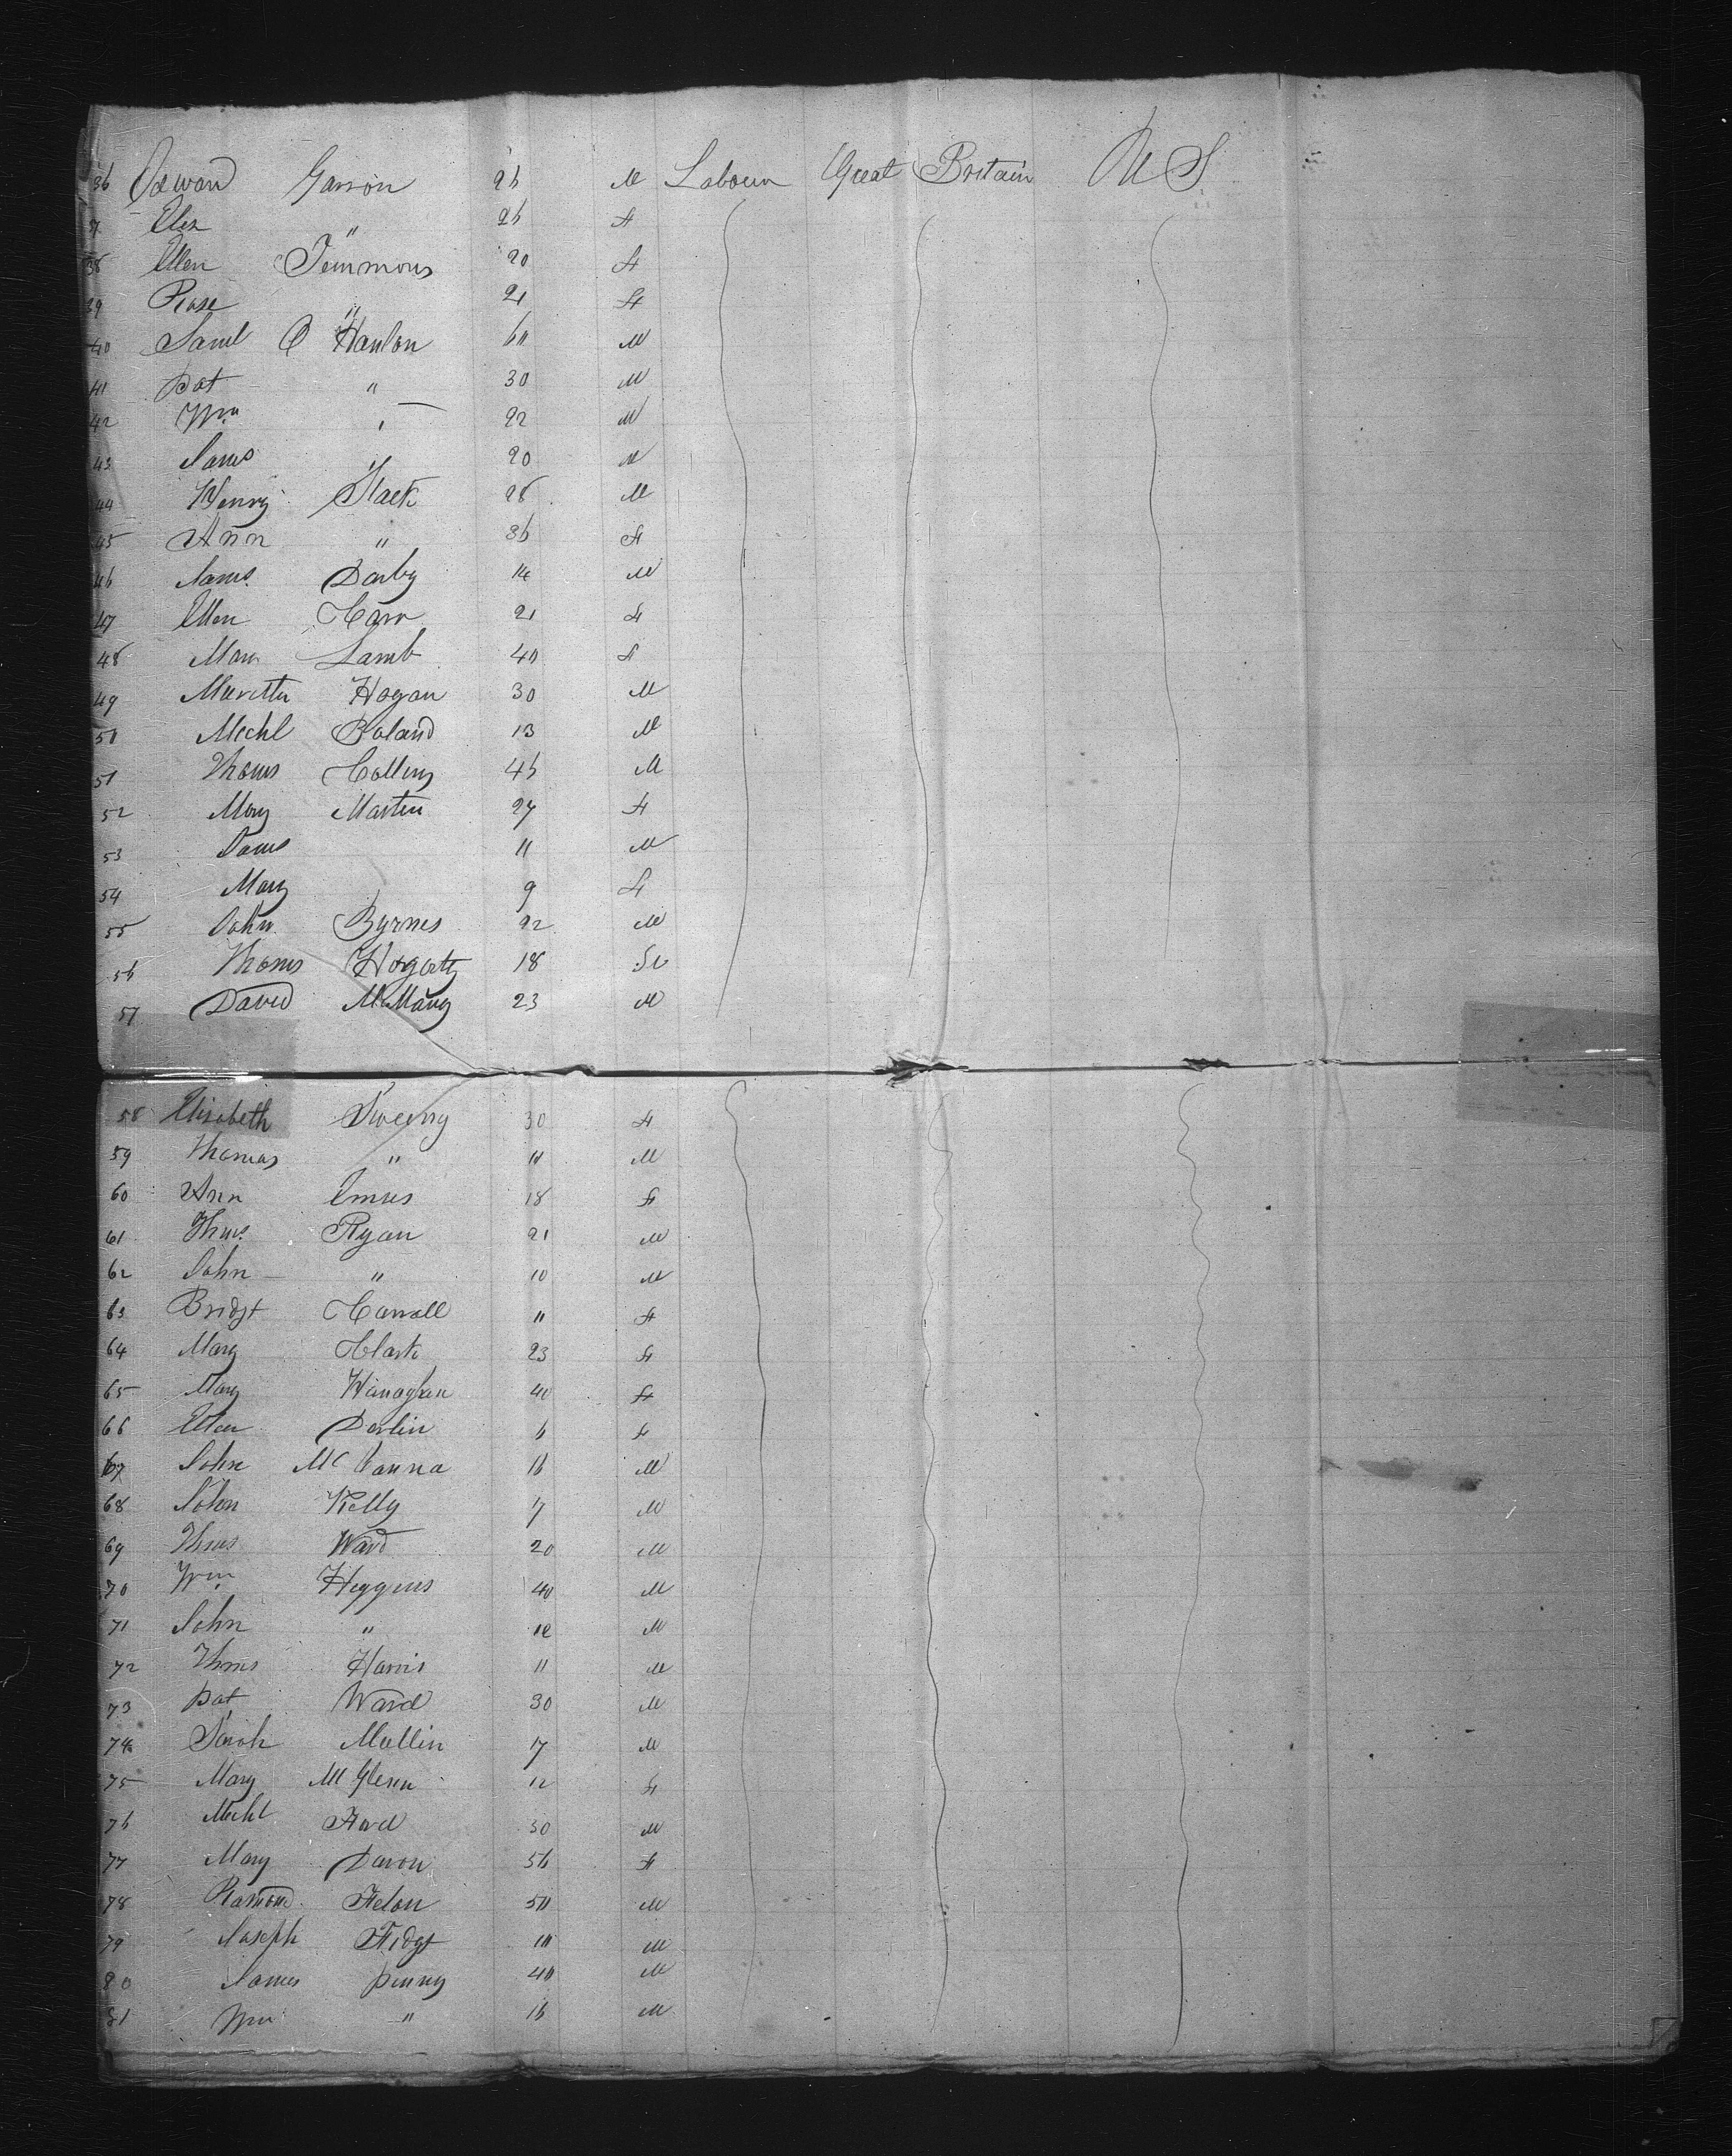 36 Edward Garron 26 M Labour Great Britain U S
37 Eliz " 26 F
38 Ellen Timmons 20 F
39 Rose " 21 F
40 Saml O Hanlon 60 M
41 Pat " 30 M
42 Wm " 22 M
43 James " 20 M
44 Henry Slack 28 M
45 Ann " 36 F
46 James Darby 14 M
47 Ellen Carr 21 F
48 Mary Lamb 40 F
49 Hogan 30 M
50 Michl Boland 13 M
51 Thoms Collins 46 M
52 Mary Martin 27 F
53 James 11 M
54 Mary 9 F
55 John Byrnes 22 M
56 Thoms Hogarty 18
57 David 23 M
58 Elisabeth Sweeny 30 F
59 Thomas " M
60 Ann 18 F
61 Thms Ryan 21 M
62 John " 10 M
63 Bridgt Carroll 11 F
64 Mary Clark 23 F
65 Mary Hanaghan 40 F
66 Ellen Devlin 6 F
67 John Mc Canna 16 M
68 John Kelly 17 M
69 Thms Ward 20 M
70 Wm Higgins 40 M
71 John " 12 M
72 Thms Harris 11 M
73 Pat Ward 30 M
74 Sarah Mullin 17 M
75 Mary McGlenn 12 F
76 Michl Ford 30 M
77 Mary 56 F
78 Felon 50 M
79 Joseph 10 M
80 James Penny 40 M
81 Wm " 16 M